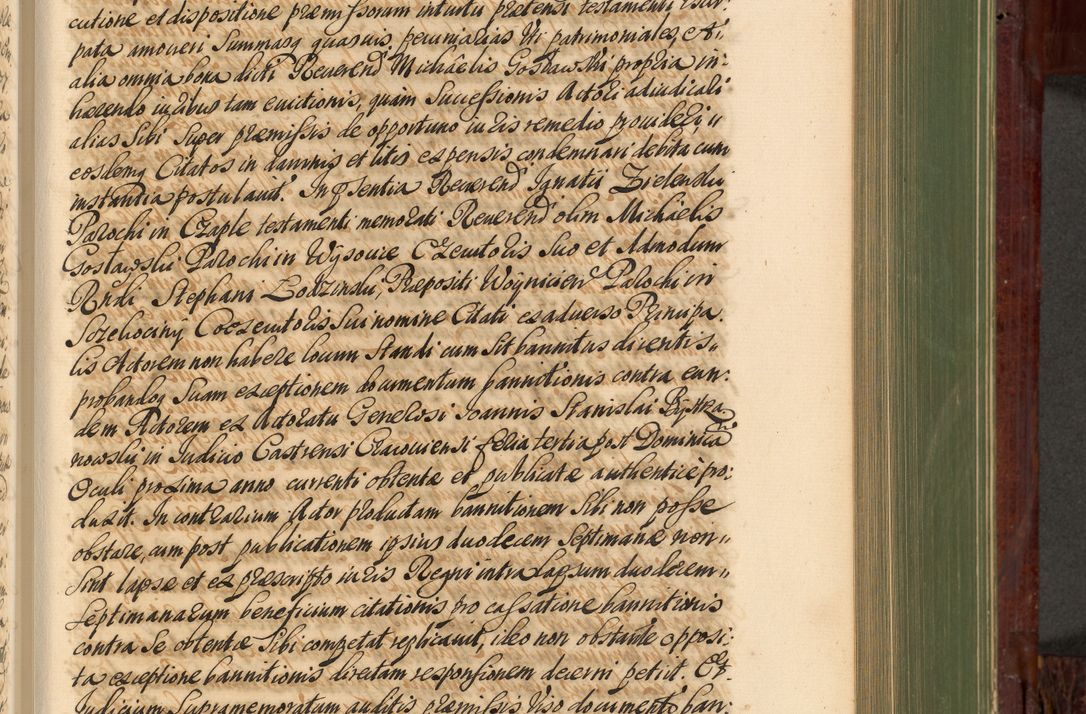 cutione et dispositione præmissorum intuitu prætensi testamenti usur:
pata amoveri Summasq quasuis pecuniarias Vti patrimoniales, et
alia omnia bona dicti Reuerend Michaelis Gosławski propria in:
hærendo iuribus tam euictionis, quam Successionis Actori adiudicari
alias Sibi Super præmissis de opportuno iuris remedio prouideri, u
eosdemq Citatos in damnis et litis expensis condemnari debita cum
instantia postulauit. In Prsentia Reuerend Ignatii Zielenski
Parochi in Czaple testamenti memorati Reuerend olim Michaelis
Gosławski Parochi in Wysocie Executoris Suo et Admodum
Rndi Stephani Łodzinski, Præpositi Woynicien Parochi in
Szczekociny Coexecutoris Sui nomine Citati ex aduerso Principa
lis Actorem non habere locum Standi cum Sit bannitus dicentis,,
probandoq Suam exceptionem documentum bannitionis contra eun:
dem Actorem ex Actoratu Generosi Joannis Stanislai Bystrza
nowski in Judicio Castrensi Cracouiensi feria tertia post Dominica
Oculi proxima anno currenti obtentæ et publicatæ authenticè pro:
duxit. In contrarium Actor productam bannitionem Sibi non posse
obstare, cum post publicationem ipsius duodecem Septimanæ non
Sint lapsæ et ex præscripto iuris Regni intra lapsum duodecem,,
Septimanarum beneficium citationis pro cassatione bannitionis
contra Se obtentæ Sibi competat replicauit, ideo non obstante opposi:
ta exceptione bannitionis directam responsionem decerni petiit. Et
Judicium Supramemoratum auditis præmissis Viso documento ban: